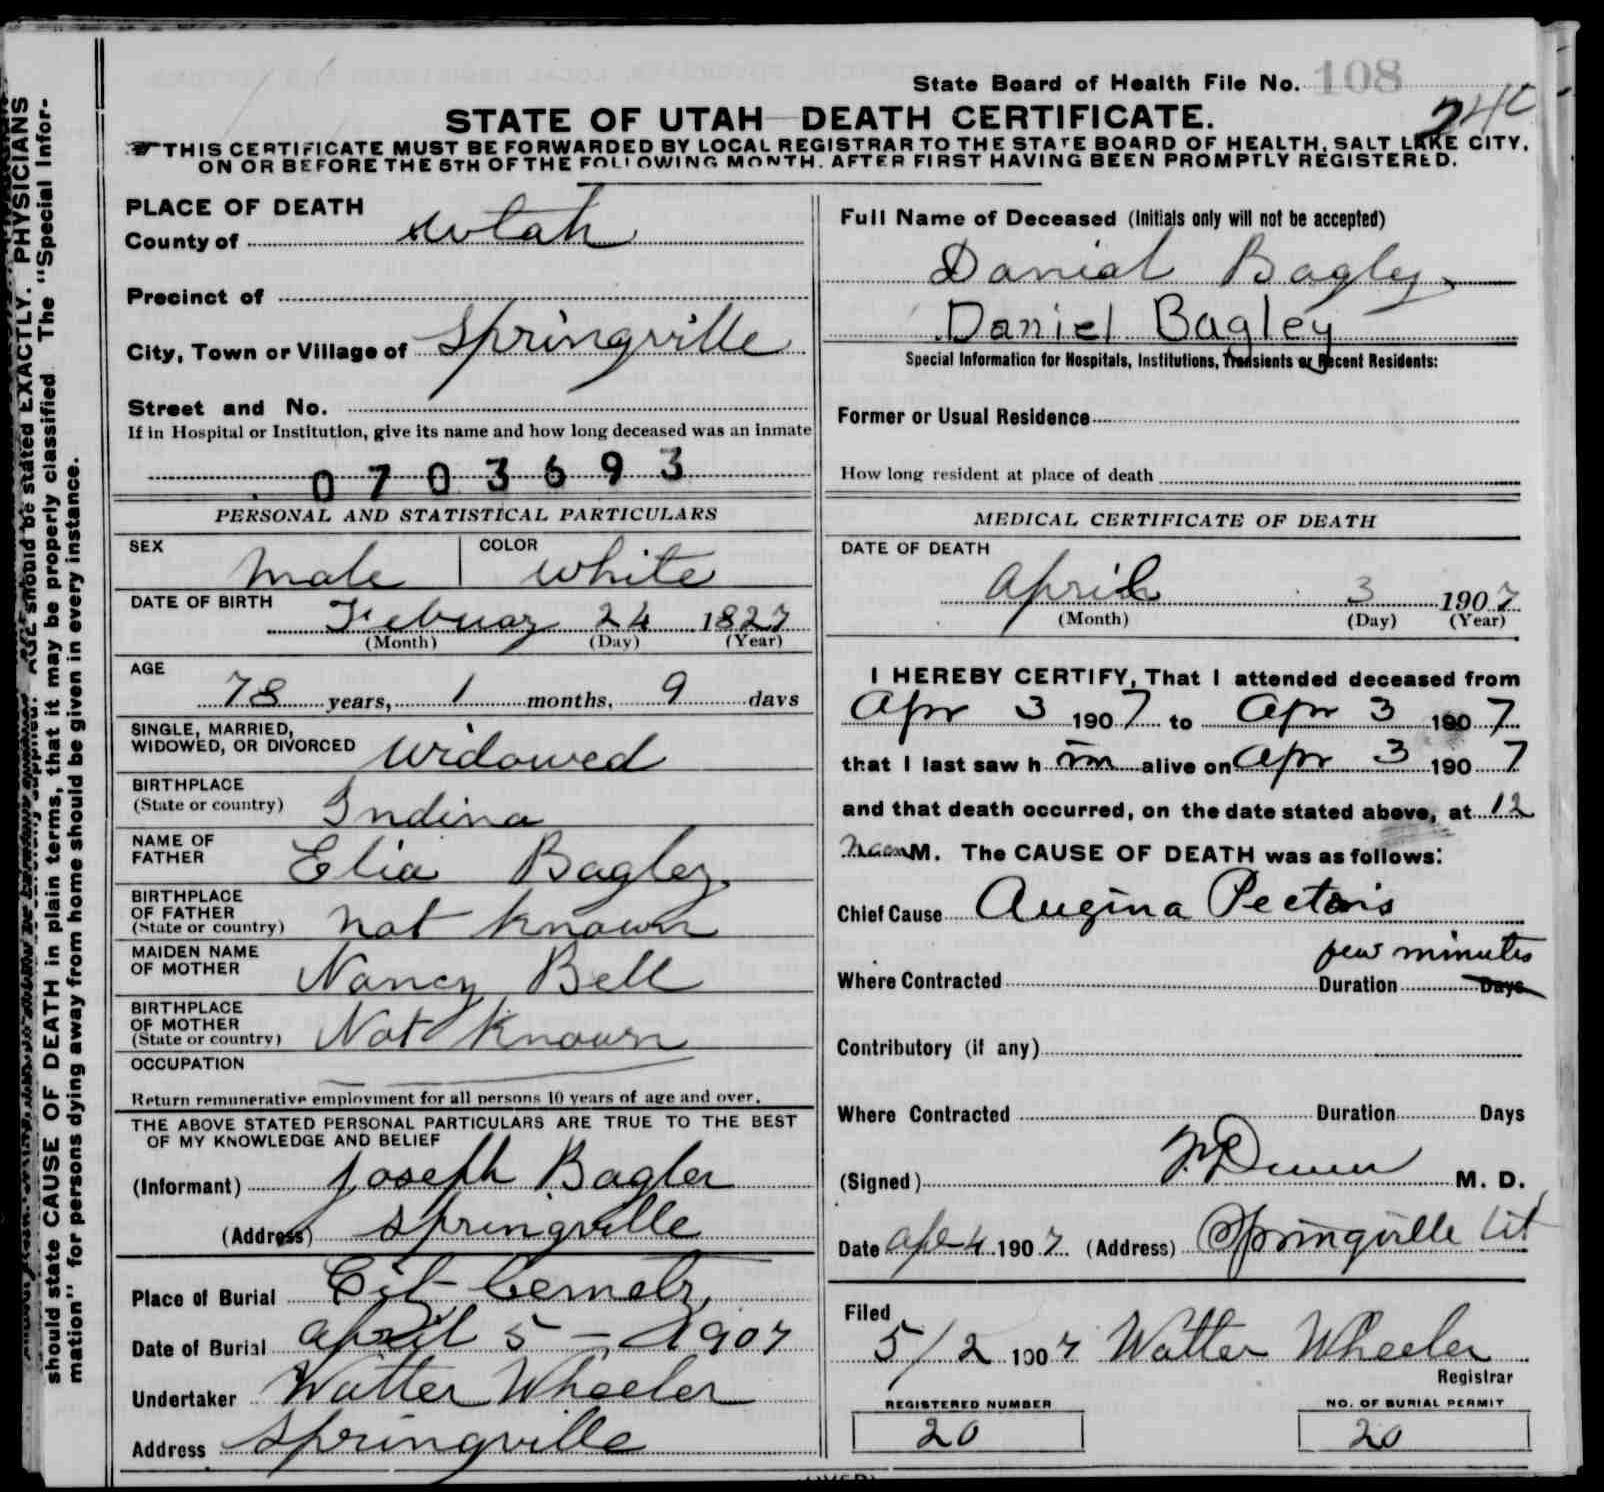 State Board of Health File No. 108
240
STATE OF UTAH DEATH CERTIFICATE.
THIS CERTIFICATE MUST BE FORWARDED BY LOCAL REGISTRAR TO THE STATE BOARD OF HEALTH, SALT LAKE CITY,
ON OR BEFORE THE 5TH OF THE FOLLOWING MONTH, AFTER FIRST HAVING BEEN PROMPTLY REGISTERED.
PLACE OF DEATH
County of Utah
Precinct of
City, Town or Village of Springville
Street and No.
If in Hospital or Institution, give its name and how long deceased was an inmate
0703693
PERSONAL AND STATISTICAL PARTICULARS
SEX Male COLOR White
DATE OF BIRTH Febuary 24 1827
(Month) (Day) (Year)
AGE 78 years, 1 months, 9 days
SINGLE, MARRIED,
WIDOWED, OR DIVORCED Widowed
BIRTHPLACE
(State or country) Indina
NAME OF
FATHER Elia Bagley
BIRTHPLACE
OF FATHER
(State or country) Not Known
MAIDEN NAME
OF MOTHER Nancy Bell
BIRTHPLACE
OF MOTHER
(State or country) Not Known
OCCUPATION
Return remunerative employment for all persons 10 years of age and over.
THE ABOVE STATED PERSONAL PARTICULARS ARE TRUE TO THE BEST
OF MY KNOWLEDGE AND BELIEF
(Informant) Joseph Bagler
(Address) Springville
Place of Burial Cit Cemetry
Date of Burial April 5 - 1907
Undertaker Walter Wheeler
Address Springville
Full Name of Deceased (Initials only will not be accepted)
Danial Bagley
Daniel Bagley
Special Information for Hospitals, Institutions, Transients or Recent Residents:
Former or Usual Residence
How long resident at place of death
MEDICAL CERTIFICATE OF DEATH
DATE OF DEATH
April 3 1907
(Month) (Day) (Year)
I HEREBY CERTIFY, That I attended deceased from
Apr 3 1907 to Apr 3 1907
that I last saw h im alive on Apr 3 1907
and that death occurred, on the date stated above, at 12
noon M. The CAUSE OF DEATH was as follows:
Chief Cause Angina Pectoris
few minutes
Where Contracted Duration Days
Contributory (if any)
Where Contracted Duration Days
(Signed) Dunn M. D.
Date Apr 4 1907 (Address) Springville Ut
Filed
5/2 1907 Walter Wheeler
Registrar
REGISTERED NUMBER
20
NO. OF BURIAL PERMIT
20
(OVER)
AGE should be stated EXACTLY. PHYSICIANS
should state CAUSE OF DEATH in plain terms, that it may be properly classified. The "Special Infor-
mation" for persons dying away from home should be given in every instance.